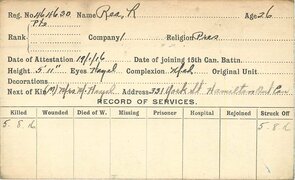 Reg. No. 464630 Name Rae, R Age 26
Rank Pte Company 1 Religion Pres
Date of Attestation 19/1/16 Date of joining 15th Can. Battn.
Height 5'11" Eyes Hazel Complexion Original Unit
Decorations
Next of Kin (M) Mrs M. Address 331 York St Hamilton Ont Can
RECORD OF SERVICES.
Killed Wounded Died of W. Missing Prisoner Hospital Rejoined Struck Off
5.8.16 5.8.16